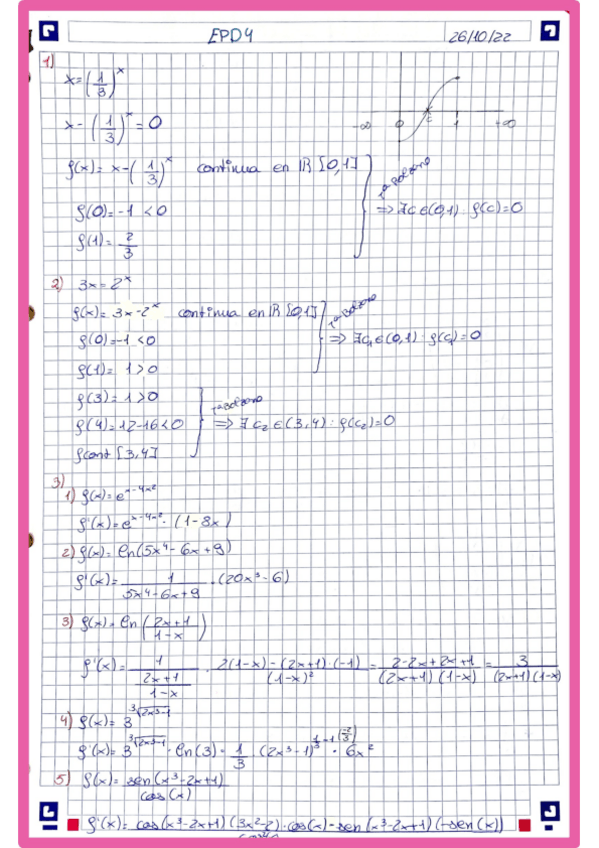 EPD4 26/10/22
1)
x = (1/3)^x
x - (1/3)^x = 0
-∞ 0 c 1 +∞
f(x) = x - (1/3)^x continua en ℝ [0,1]
f(0) = -1 < 0
f(1) = 2/3
Tª Bolzano
=> ∃c ∈ (0,1) : f(c) = 0
2) 3x = 2^x
f(x) = 3x - 2^x continua en ℝ [0,1]
f(0) = -1 < 0
f(1) = 1 > 0
Tª Bolzano
=> ∃c₁ ∈ (0,1) : f(c₁) = 0
f(3) = 1 > 0
f(4) = 12 - 16 < 0
f cont [3,4]
Tª Bolzano
=> ∃ c₂ ∈ (3,4) : f(c₂) = 0
3)
1) f(x) = e^(x-4x²)
f'(x) = e^(x-4x²) · (1-8x)
2) f(x) = ln(5x⁴-6x+9)
f'(x) = 1/(5x⁴-6x+9) · (20x³-6)
3) f(x) = ln((2x+1)/(1-x))
f'(x) = 1/((2x+1)/(1-x)) · (2(1-x)-(2x+1)·(-1))/(1-x)² = (2-2x+2x+1)/((2x+1)(1-x)) = 3/((2x+1)(1-x))
4) f(x) = 3^(∛(2x³-1))
f'(x) = 3^(∛(2x³-1)) · ln(3) · 1/3 (2x³-1)^(1/3-1) (-2/3) · 6x²
5) f(x) = sen(x³-2x+1)/cos(x)
f'(x) = cos(x³-2x+1)(3x²-2)·cos(x)-sen(x³-2x+1)(-sen(x))